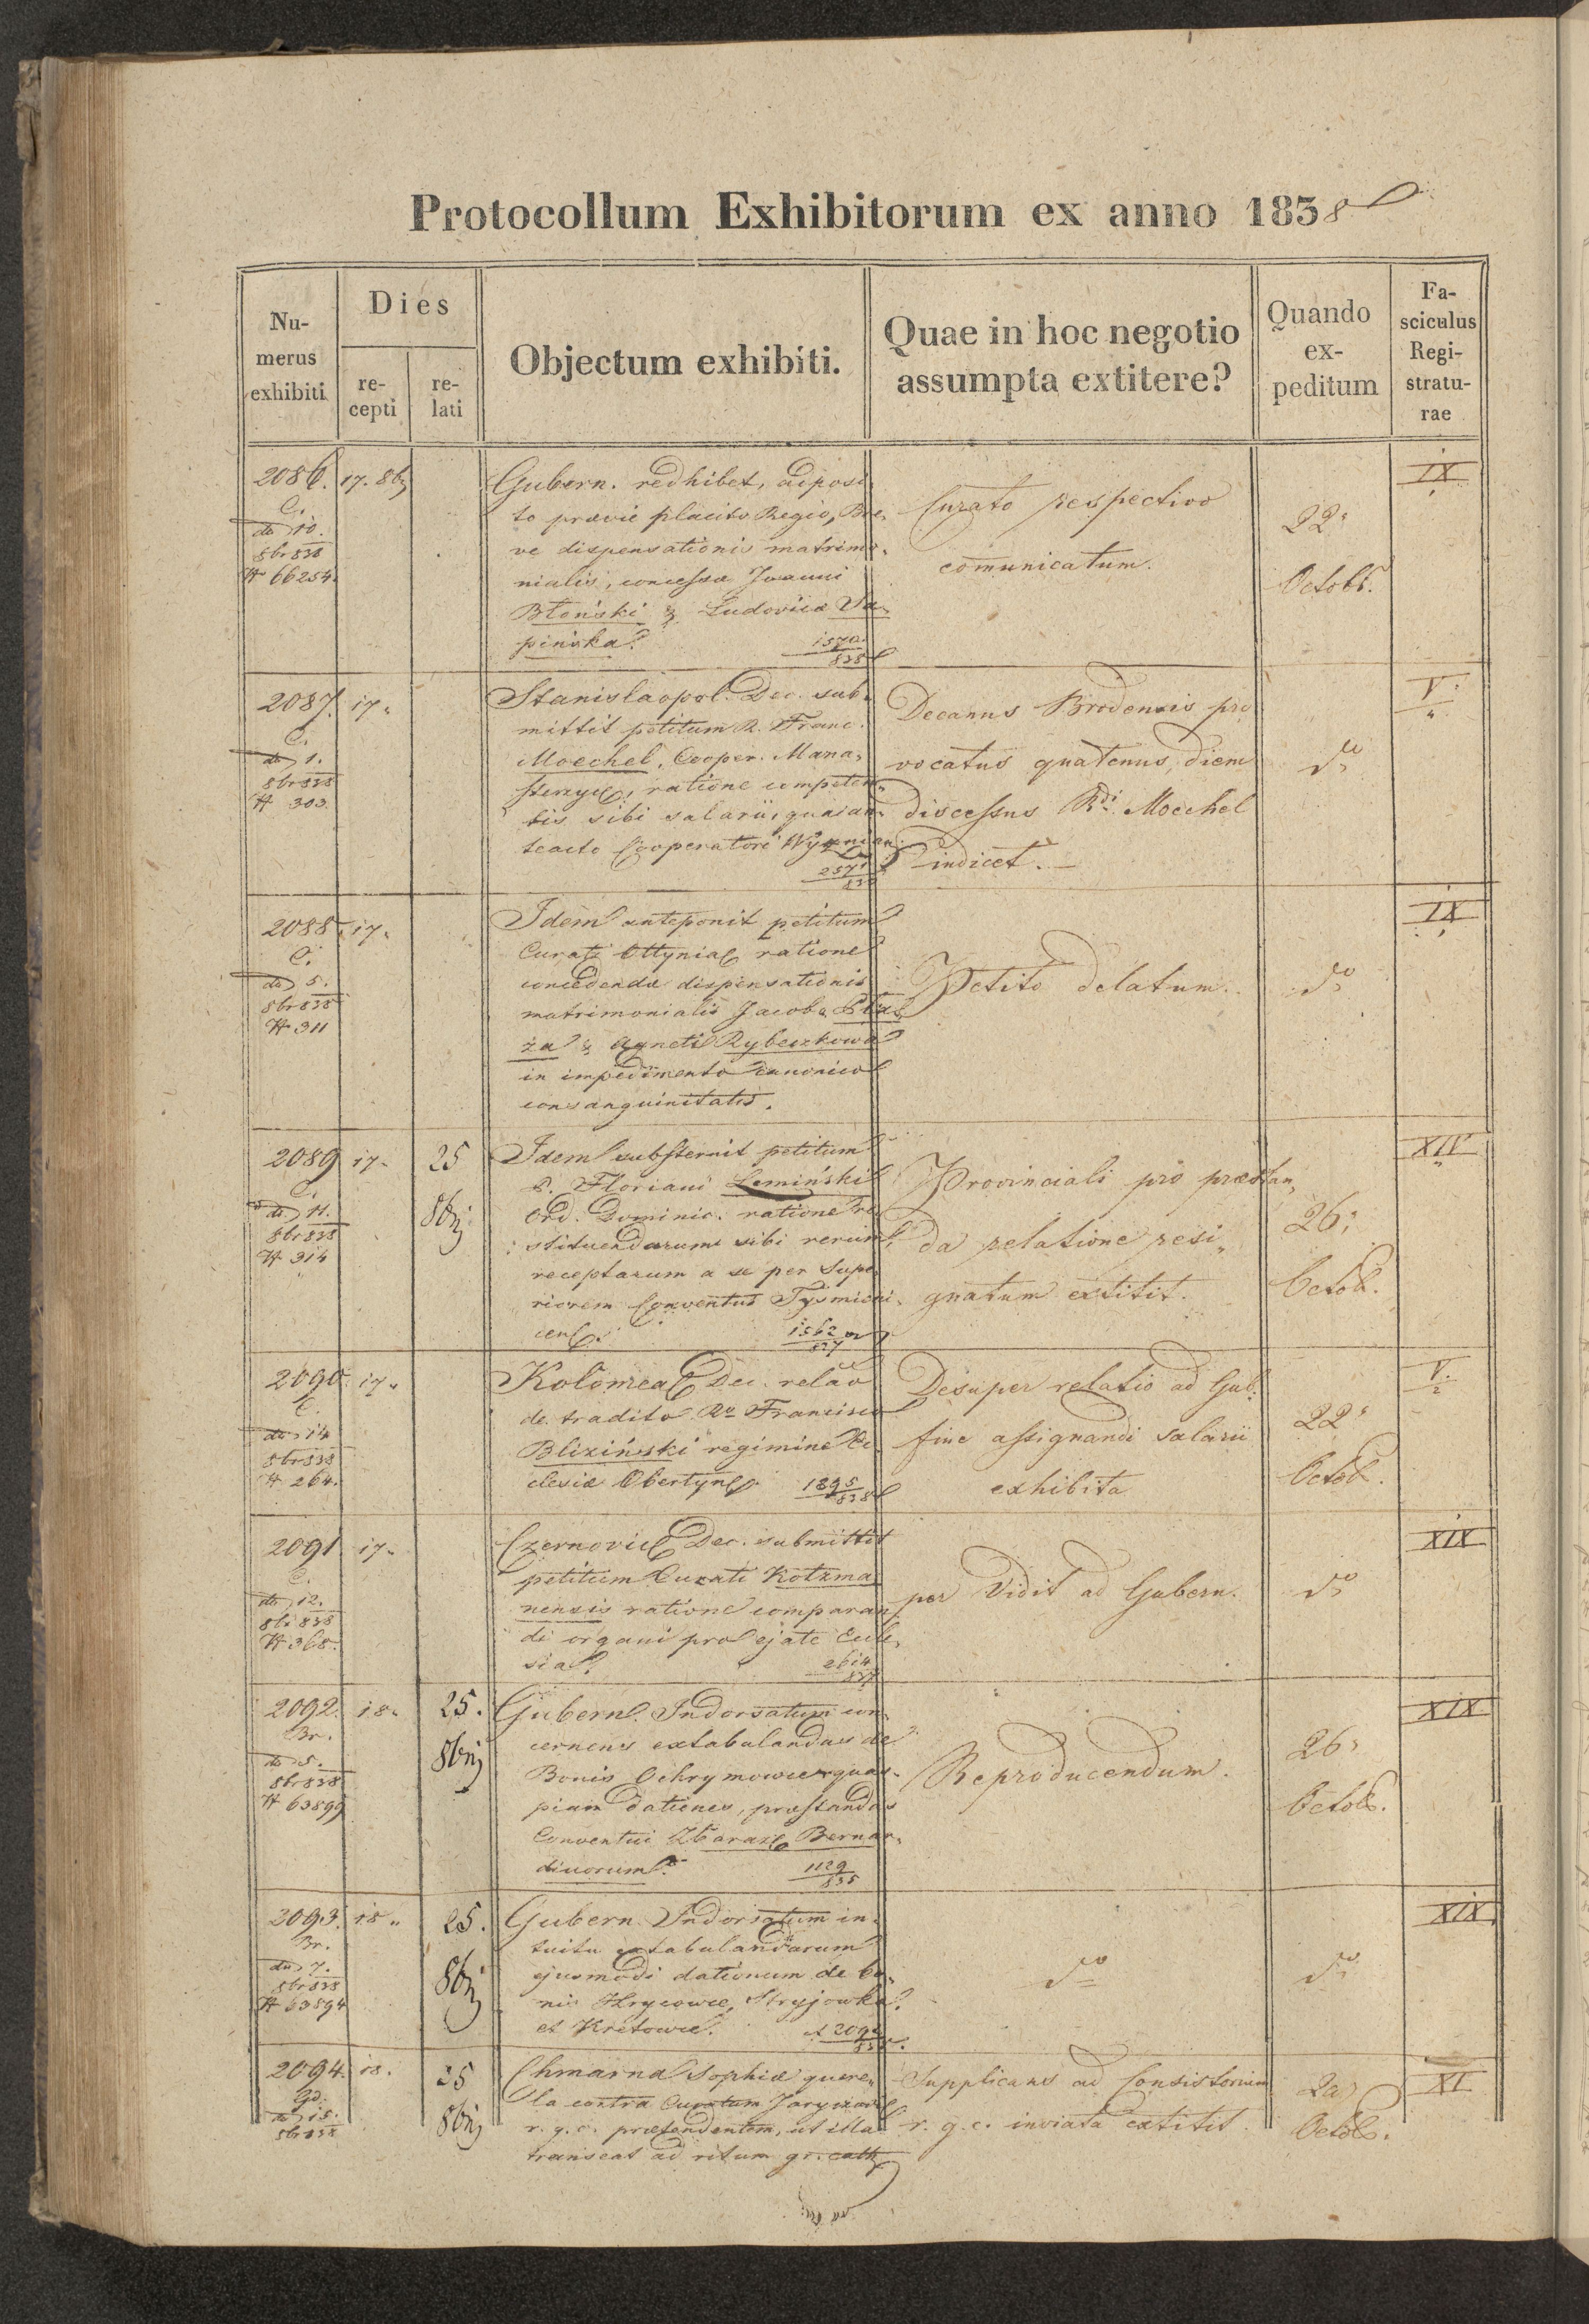 Protocollum Exhibitorum ex anno 1838
Nu-
merus
exhibiti
Dies
re-
cepti
re-
lati
Objectum exhibiti.
Quae in hoc negotio
assumpta extitere?
Quando
ex-
peditum
Fa-
sciculus
Regi-
stratu-
rae
2086. 17. 8br
C.
do 10.
8br 838
# 66254.
Gubern. redhibet, adposi-
to praevie placito Regio, Bre-
ve dispensationis matrimo-
nialis, concessae Joanni
Błoński & Ludovica
pińska.
1570
838
Curato respectivo
comunicatum.
22
Octobr.
IX
2087. 17.
C.
do 1.
8br 838
# 303.
Stanislaopol. Dec. sub-
mittit petitum R. Franc.
Moechel, Cooper. Mana-
sterzyc, ratione competen-
tis sibi salarii, quasi an-
teacto Cooperatori
257
838
Decanus Brodensis pro
vocatus quatenus, diem
discessus Rdi Moechel
indicet.
do
V.
2088. 17.
C.
do 5.
8br 838
# 311
Idem anteponit petitum
Curati Ottyniae ratione
concedendae dispensationis
matrimonialis Jacobo
za & Agneti Rybeszkowa
in impedimento canonico
consanguinitatis.
Petito delatum.
do
IX
2089 17. 25
C.
do 11.
8br 838
# 314
8brj
Idem substernit petitum
P. Floriani Lemiński
Ord. Dominic. ratione re-
stituendarum sibi rerum
receptarum a se per Supe-
riorem Conventus Tysmieni-
cens.
1562
837
Provinciali pro praestan-
da relatione resi-
gnatum extitit.
26
Octob.
XIV
2090. 17.
C.
do 14
8br 838
# 264.
Kolomeae Dec. relao
de tradito Ro Francisco
Bliziński regimine Ec-
clesiae Obertyn.
1895
838
Desuper relatio ad Gub.
fine assignandi salarii
exhibita
22
Octob.
V.
2091 17.
C.
do 12.
8br 838
# 368.
Czernovic Dec. submittit
petitum Curati Kotzma-
nensis ratione comparan-
di organi pro ejate Eccle-
sia.
2614
837
per Vidit ad Gubern.
do
XIX
2092. 18. 25.
Br.
do 5.
8br 838
# 63899
8brj
Gubern. Indorsatum con-
cernens extabulandas de
Bonis Ochrymowce quas-
piam dationes, praestandas
Conventui Zbaraz Bernar-
dinorum.
1129
835
Reproducendum.
26
Octob.
XIX
2093. 18. 25.
Br.
do 7.
8br 838
# 63894
8brj
Gubern. Indorsatum in-
tuitu extabulandarum
ejusmodi dationum de bo-
nis Hrycowce, Stryjowka
et Kretowce.
ad 2092
do
do
XIX
2094. 18. 25
Gd.
do 15.
8br 838
8brj
Chmarna Sophia quere-
la contra Curatum
r. g. c. praetendentem, ut illa
transeat ad ritum gr. cath.
Supplicans ad Consistorium
r. g. c. inviata extitit.
Octob.
XI